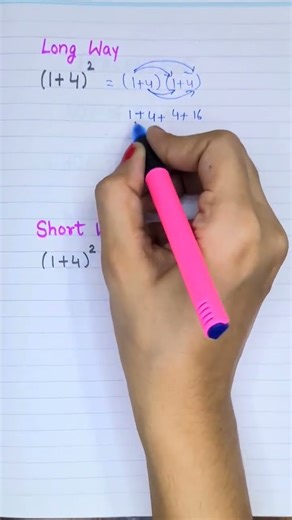 Long Way
(1+4)² = (1+4)(1+4)
1+4+4+16
Short
(1+4)²